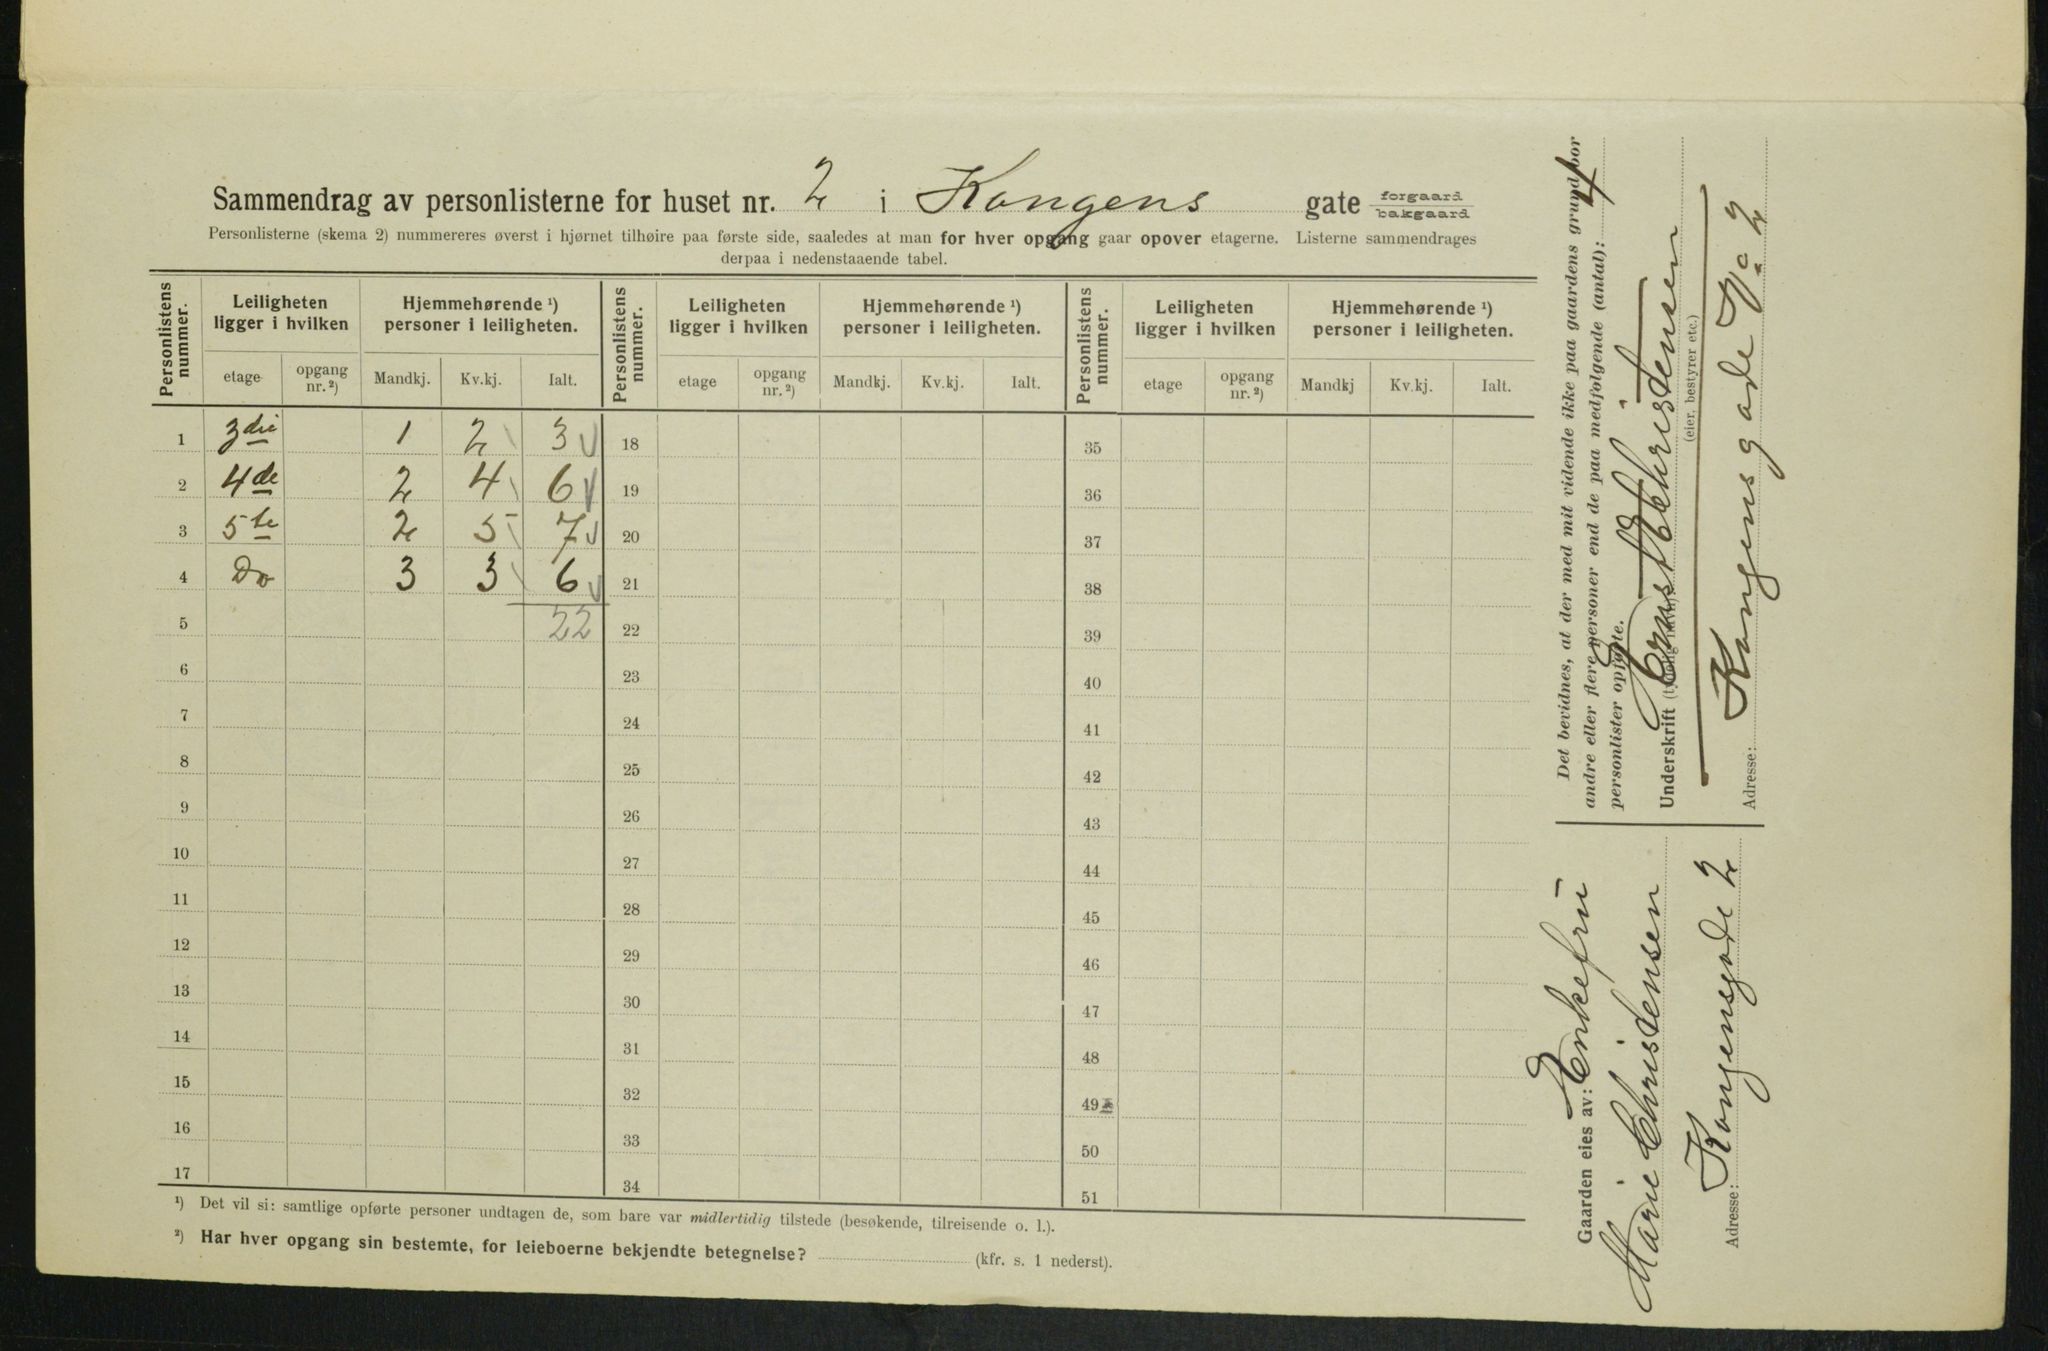 Sammendrag av personlisterne for huset nr. 2 i Kongens gate forgaard bakgaard
Personlisterne (skema 2) nummereres øverst i hjørnet tilhøire paa første side, saaledes at man for hver opgang gaar opover etagerne. Listerne sammendrages
derpaa i nedenstaaende tabel.
Personlistens nummer. Leiligheten ligger i hvilken Hjemmehørende ¹) personer i leiligheten. Personlistens nummer. Leiligheten ligger i hvilken Hjemmehørende ¹) personer i leiligheten. Personlistens nummer. Leiligheten ligger i hvilken Hjemmehørende ¹) personer i leiligheten.
etage opgang nr. ²) Mandkj. Kv.kj. Ialt. etage opgang nr. ²) Mandkj. Kv.kj. Ialt. etage opgang nr. ²) Mandkj Kv.kj. Ialt.
1 3die 1 2 3 18 35
2 4de 2 4 6 19 36
3 5te 2 5 7 20 37
4 Do 3 3 6 21 38
5 22 22 39
6 23 40
7 24 41
8 25 42
9 26 43
10 27 44
11 28 45
12 29 46
13 30 47
14 31 48
15 32 49
16 33 50
17 34 51
¹) Det vil si: samtlige opførte personer undtagen de, som bare var midlertidig tilstede (besøkende, tilreisende o. l.).
²) Har hver opgang sin bestemte, for leieboerne bekjendte betegnelse? (kfr. s. 1 nederst).
Det bevidnes, at der med mit vidende ikke paa gaardens grund bor
andre eller flere personer end de paa medfølgende (antal): 4
personlister opførte.
Underskrift (tydelig navn): Christensen
(eier, bestyrer etc.)
Adresse: Kongensgade No 2
Gaarden eies av: Enkefru
Marie Christensen
Adresse: Kongensgade 2